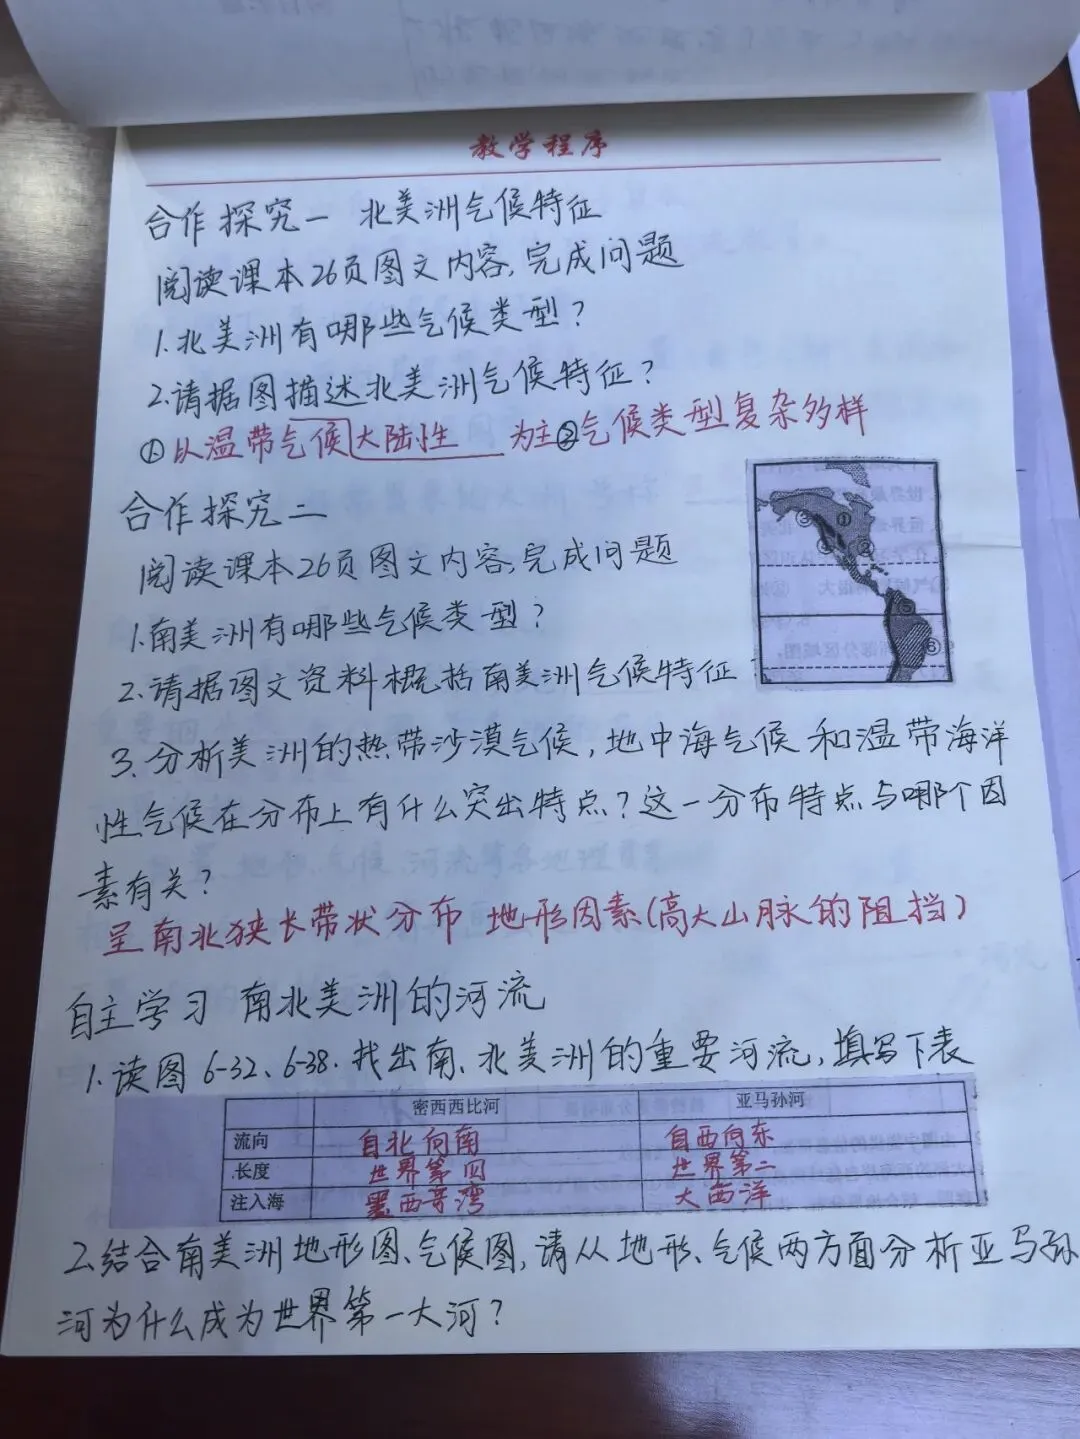 教学程序
合作探究一 北美洲气候特征
阅读课本26页图文内容,完成问题
1.北美洲有哪些气候类型?
2.请据图描述北美洲气候特征?
①以温带气候大陆性 为主②气候类型复杂多样
合作探究二
阅读课本26页图文内容,完成问题
1.南美洲有哪些气候类型?
2.请据图文资料概括南美洲气候特征
3.分析美洲的热带沙漠气候,地中海气候和温带海洋
性气候在分布上有什么突出特点?这一分布特点与哪个因
素有关?
呈南北狭长带状分布 地形因素(高大山脉的阻挡)
自主学习 南北美洲的河流
1.读图6-32、6-38.找出南、北美洲的重要河流,填写下表
密西西比河 亚马孙河
流向 自北向南 自西向东
长度 世界第四 世界第二
注入海 墨西哥湾 大西洋
2.结合南美洲地形图、气候图,请从地形、气候两方面分析亚马孙
河为什么成为世界第一大河?